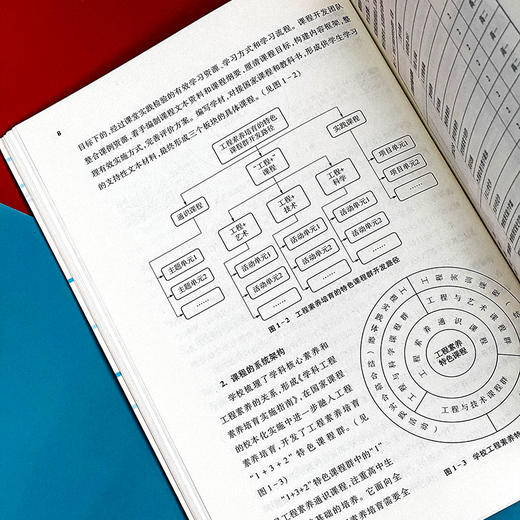 8
目标下的，经过课堂实践检验的有效学习资源、学习方式和学习流程。课程开发团队
整合课例资源，着手编制课程文本资料和课程纲要，厘清课程目标，构建内容框架，整
理有效实施方式，完善评价方案。编写学材，对接国家课程和教科书，形成供学生学习
的支持性文本材料，最终形成三个板块的具体课程。（见图1-2）
工程素养培育的特色
课程群开发路径
通识课程
“工程+”
课程
实践课程
工程+
艺术
工程+
技术
工程+
科学
项目单元1
项目单元2
……
主题单元1
主题单元2
……
活动单元1
活动单元2
……
活动单元1
活动单元2
……
活动单元1
活动单元2
……
图1-2 工程素养培育的特色课程群开发路径
2. 课程的系统架构
学校梳理了学科核心素养和
工程素养的关系，形成《学科工程
素养培育实施指南》，在国家课程
的校本化实施中进一步融入工程
素养培育，开发了工程素养培育
“1+3+2”特色课程群。（见
图1-3）
“1+3+2”特色课程群中的“1”
工程素养通识课程，注重高中生
基础的培养。它面向全
素养培育需要全
工程素养
特色课程
工程素养通识课程
工程与艺术课程群
工程与技术课程群
工程与科学课程群
工程实训课程
图1-3 学校工程素养特